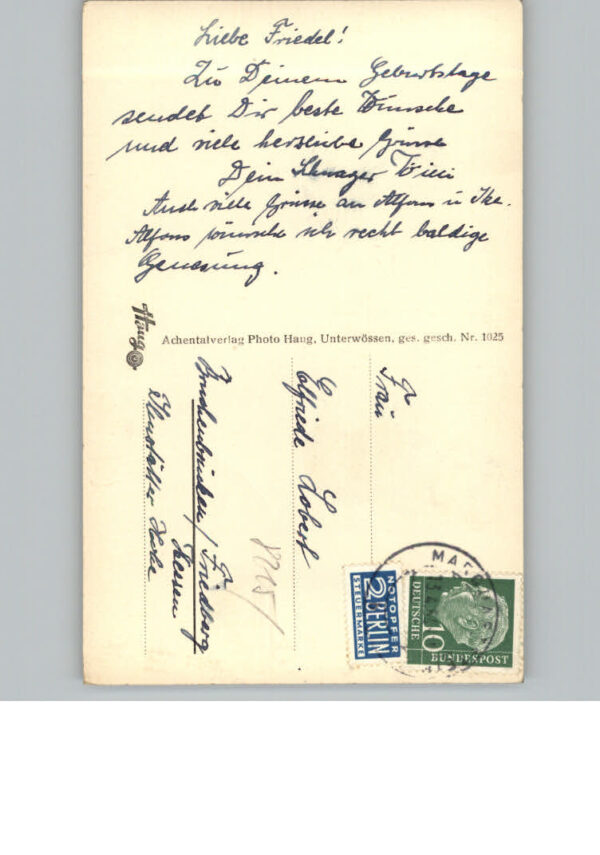 Liebe Friedel!
Zu Deinem Geburtstage
sendet Dir beste Wünsche
und viele herzliche Grüsse
Dein Schwager Willi
Auch viele Grüsse an Alfons u.
Alfons wünsche ich recht baldige
Genesung.
Haug
Achentalverlag Photo Haug, Unterwössen, ges. gesch. Nr. 1025
Frau
Elfriede Lobert
Bruchenbrücken / Friedberg
Hessen
NOTOPFER
2 BERLIN
STEUERMARKE
DEUTSCHE
10
BUNDESPOST